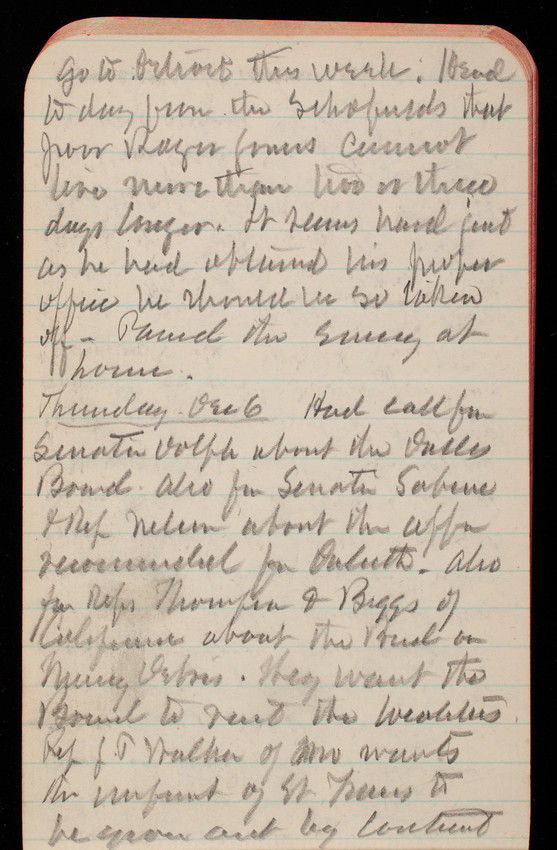 go to Detroit this week. Heard
to day from the Schofields that
poor Roger Jones cannot
live more than two or three
days longer. It seems hard just
as he had obtained his proper
office he should be so taken
off - Passed the evening at
home.
Thursday Dec 6 Had call from
Senator Dolph about the Dalles
Board. Also from Senator Sabine
& Rep Nelson about the
recommended for Duluth. Also
from Reps Thompson & Biggs of
California about the Board on
Mining Debris. They want the
Board to visit the localities.
Rep J P Walker of Mo wants
the of St Francis to
be given out by contract